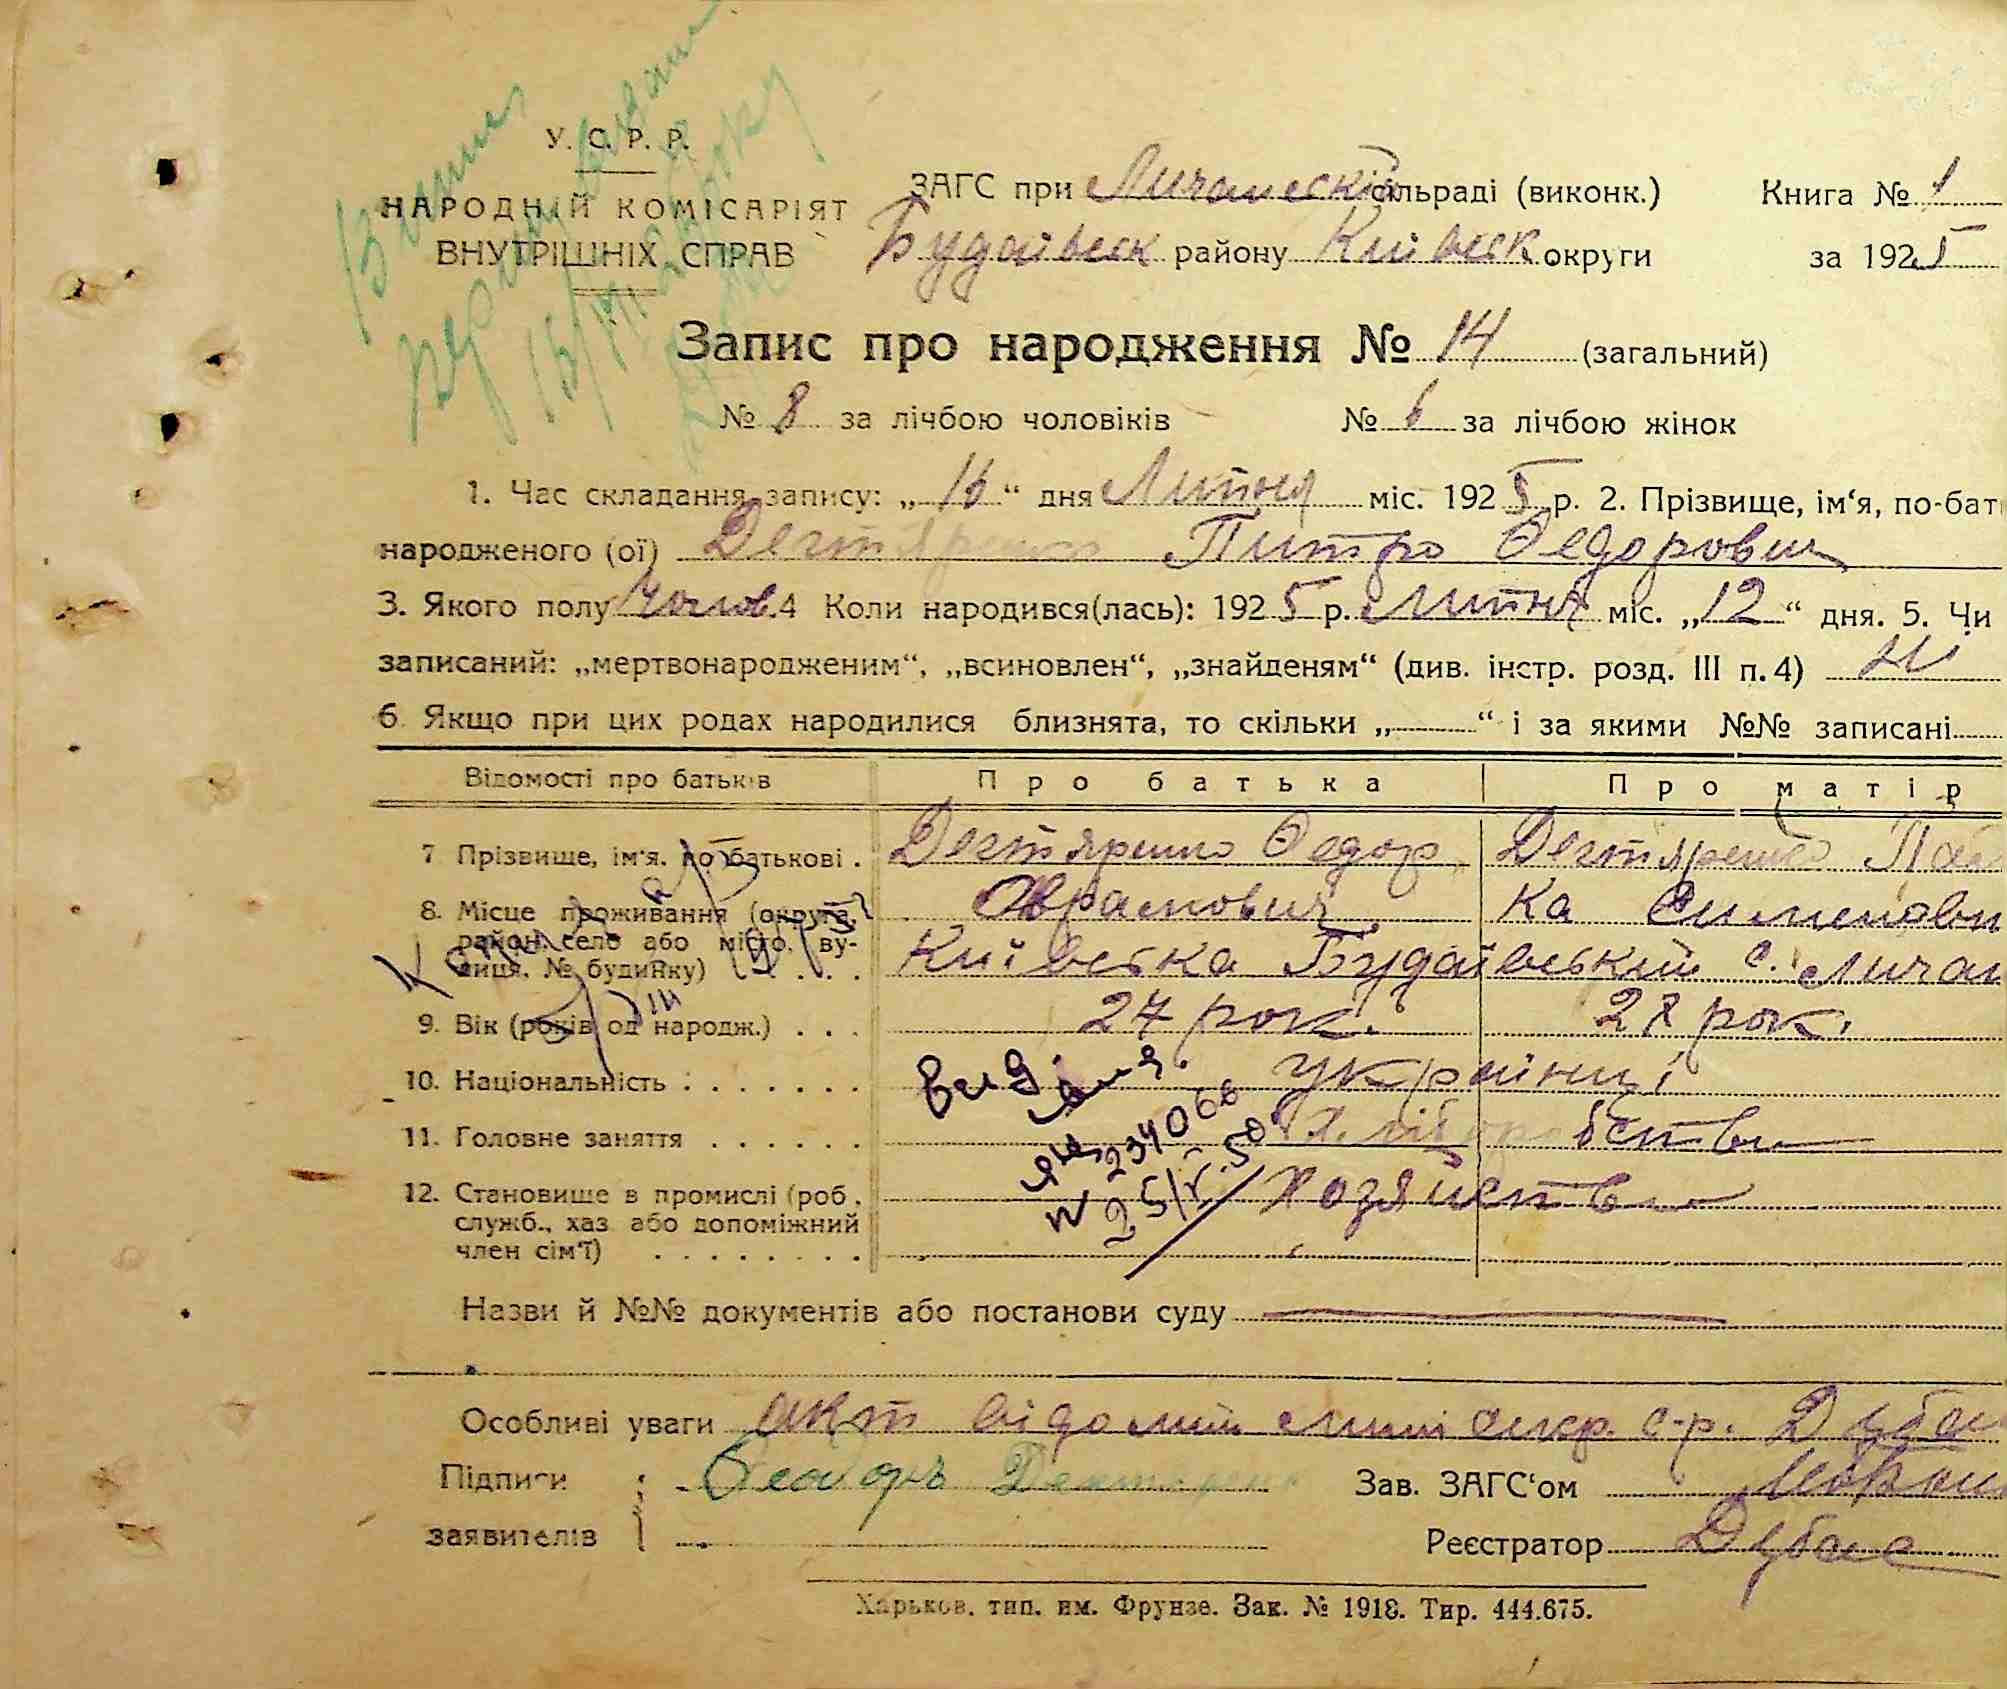 У. С. Р. Р.
НАРОДНІЙ КОМІСАРІЯТ
ВНУТРІШНІХ СПРАВ
ЗАГС при сільраді (виконк.) Книга № 1
Будаївськ району Київськ округи за 1925
Запис про народження № 14 (загальний)
№ 8 за лічбою чоловіків № 6 за лічбою жінок
1. Час складання запису: „16“ дня Липня міс. 1925 р. 2. Прізвище, ім‘я, по-бат
народженого (ої) Дегтяренко Питро Федорович
3. Якого полу чолов. 4 Коли народився(лась): 1925 р. Липня міс. „12“ дня. 5. Чи
записаний: „мертвонародженим“, „всиновлен“, „знайденям“ (див. інстр. розд. III п. 4) Ні
6. Якщо при цих родах народилися близнята, то скільки „ “ і за якими №№ записані
Відомості про батьків Про батька Про матір
7 Прізвище, ім‘я, по батькові . Дегтяренко Федор Дегтяренко
Аврамович
8. Місце проживання (округа,
район, село або місто, ву-
лиця, № будинку) Київська Будаївський с. Личан
9. Вік (років од народж.) . . . 24 рок. 28 рок.
10. Національність : . . . . . . українці
11. Головне заняття . . . . . . Хліборобство
12. Становище в промислі (роб.
служб., хаз або допоміжний
член сім‘ї) . . . . . . . . Хозяйство
№ 234066
25/V-50
Назви й №№ документів або постанови суду
Особливі уваги акт с-р. Дубас
Підписи
заявителів
Зав. ЗАГС‘ом
Реєстратор Дубас
Харьков. тип. им. Фрунзе. Зак. № 1918. Тир. 444.675.